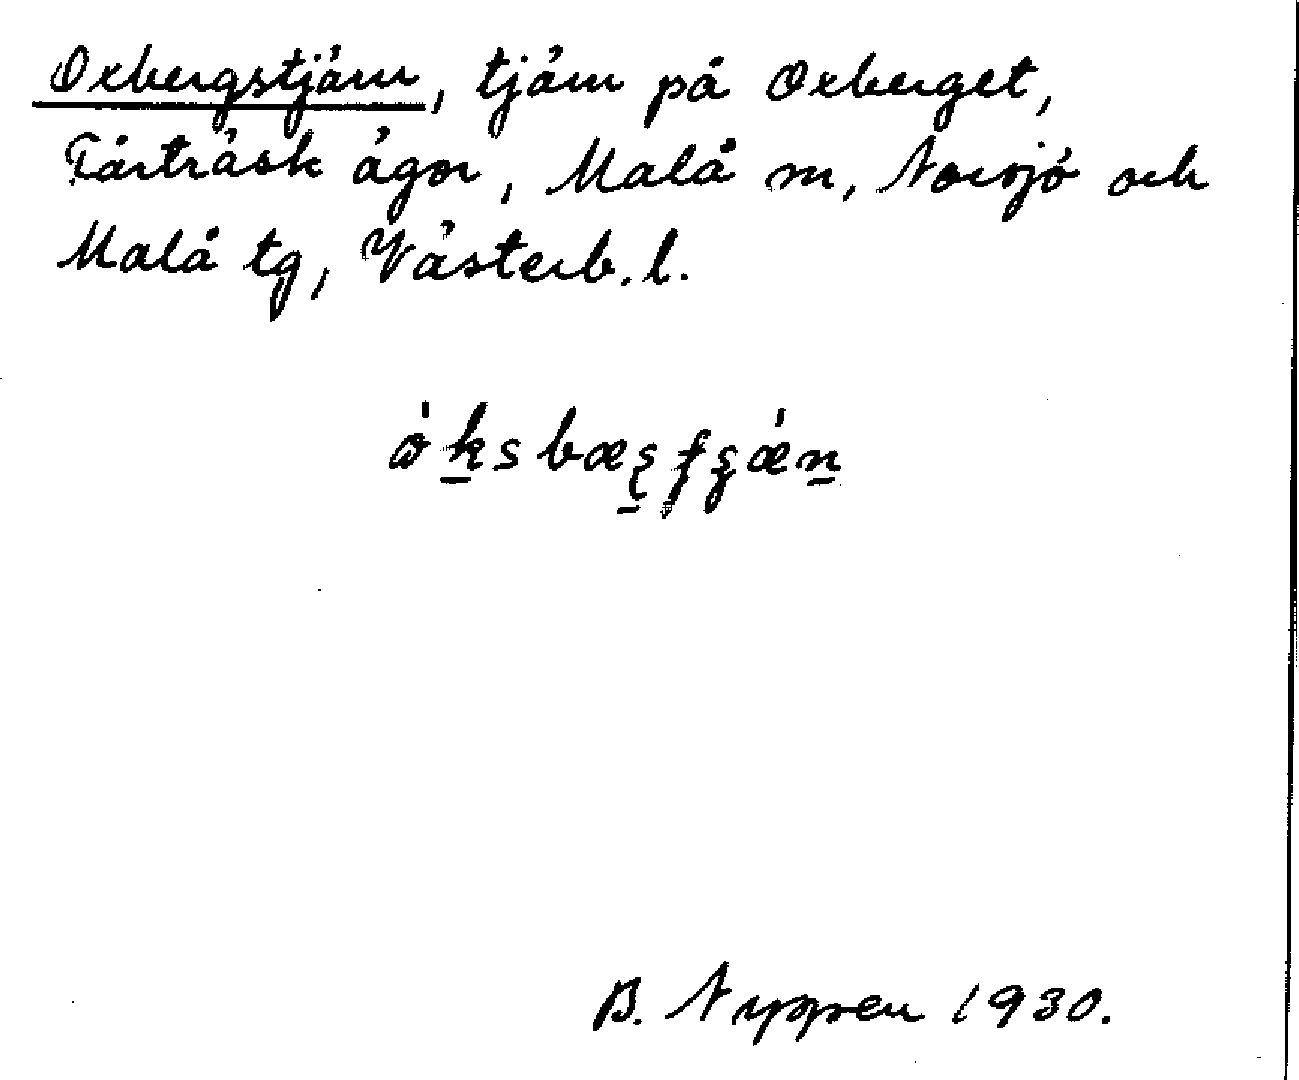 Oxbergstjärn, tjärn på Oxberget,
Tärträsk ägor, Malå sn, Norsjö och
Malå tg, Västerb. l.
B. Nyppen 1930.